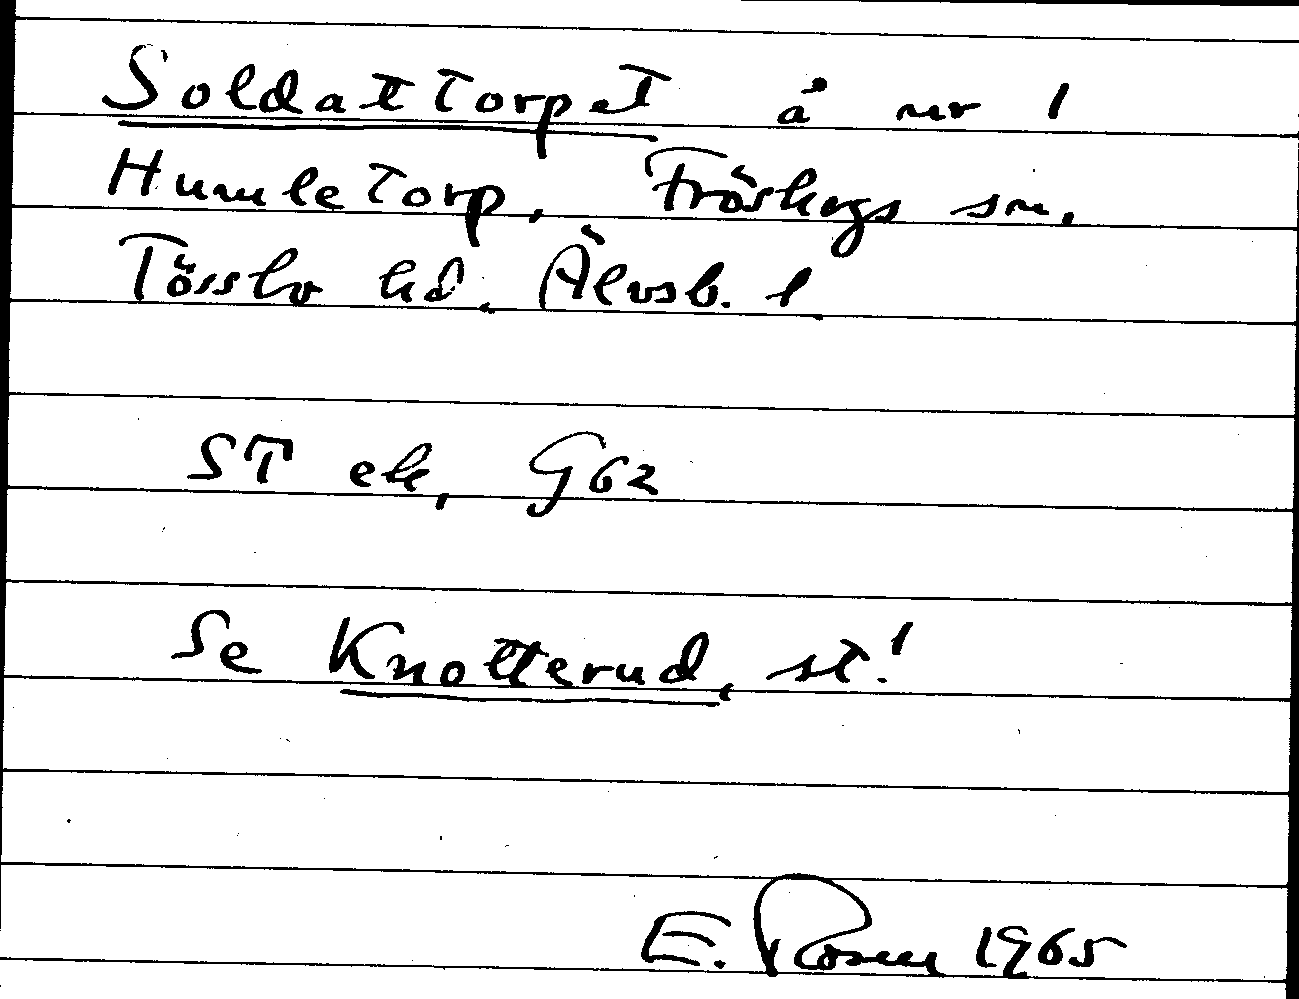 Soldattorpet å nr 1
Humletorp, Fröskogs sn.
Tössbo hd. Älvsb. l.
ST ek, G62
Se Knotterud, st!
E. Rosen 1965